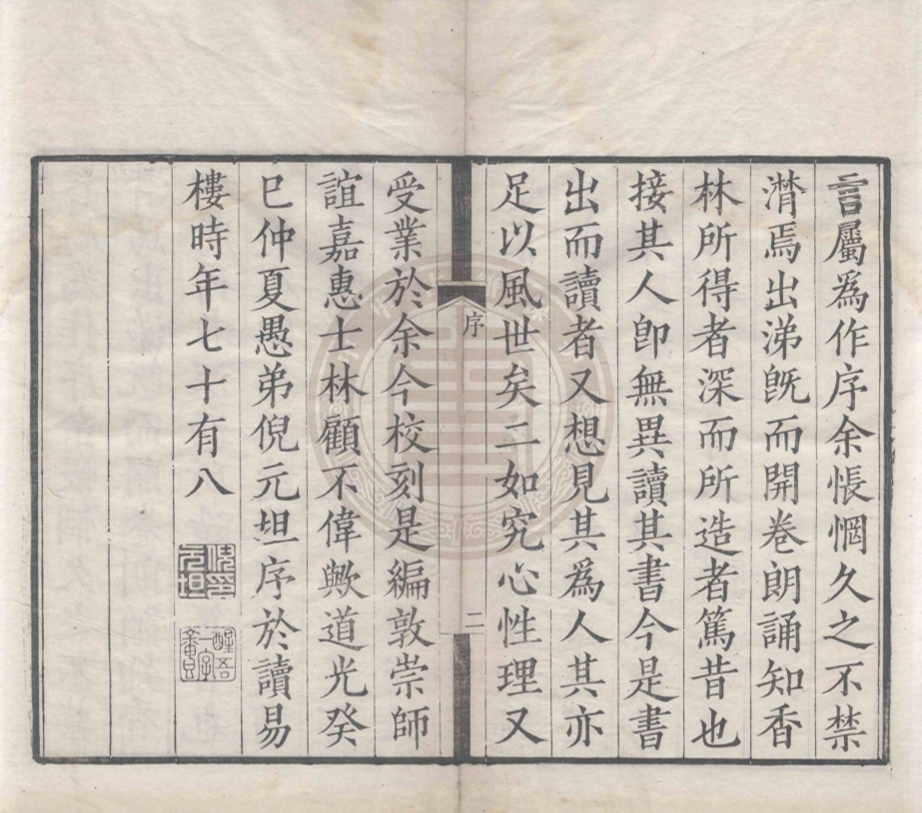 言屬爲作序余悵惘久之不禁
潸焉出涕旣而開卷朗誦知香
林所得者深而所造者篤昔也
接其人卽無異讀其書今是書
出而讀者又想見其爲人其亦
足以風世矣二如究心性理又
序
二
受業於余今校刻是編敦崇師
誼嘉惠士林顧不偉歟道光癸
巳仲夏愚弟倪元坦序於讀易
樓時年七十有八
元坦
醒吾
一字畬香